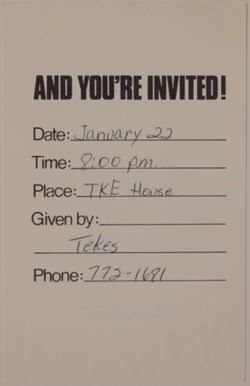 AND YOU'RE INVITED!
Date: January 22
Time: 8:00 p.m.
Place: TKE House
Given by:
Tekes
Phone: 772-1681